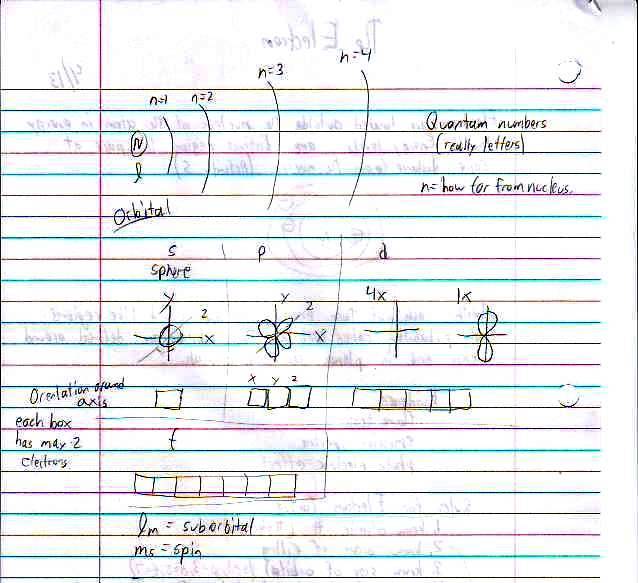 n=4
n=3
n=1 n=2
N
l
Quantum numbers
(really letters)
n= how far from nucleus.
Orbital
s p d
sphere
y z x
y z x
4x 1x
Orentation around
axis
x y z
each box
has max 2
electrons
f
lm = suborbital
ms = spin